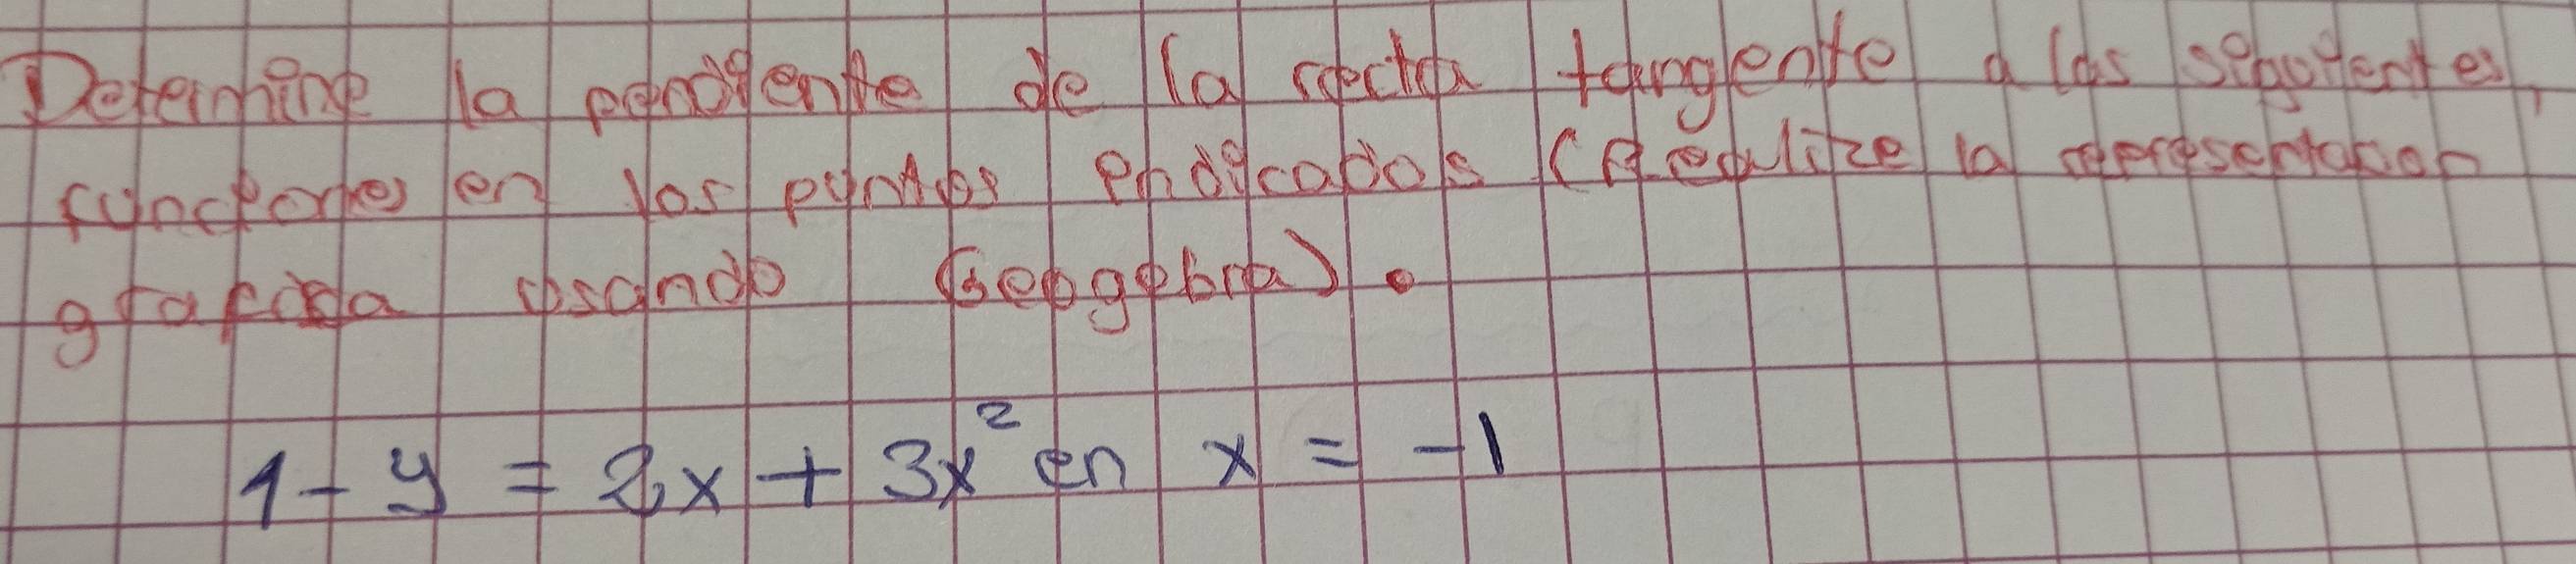 Determine la pendiente de la recta tangente a las siguientes,
funciones en los puntos indicados (Realize la representacion
grafica usando Geogebra).
1 - y = 2x + 3x² en x = -1